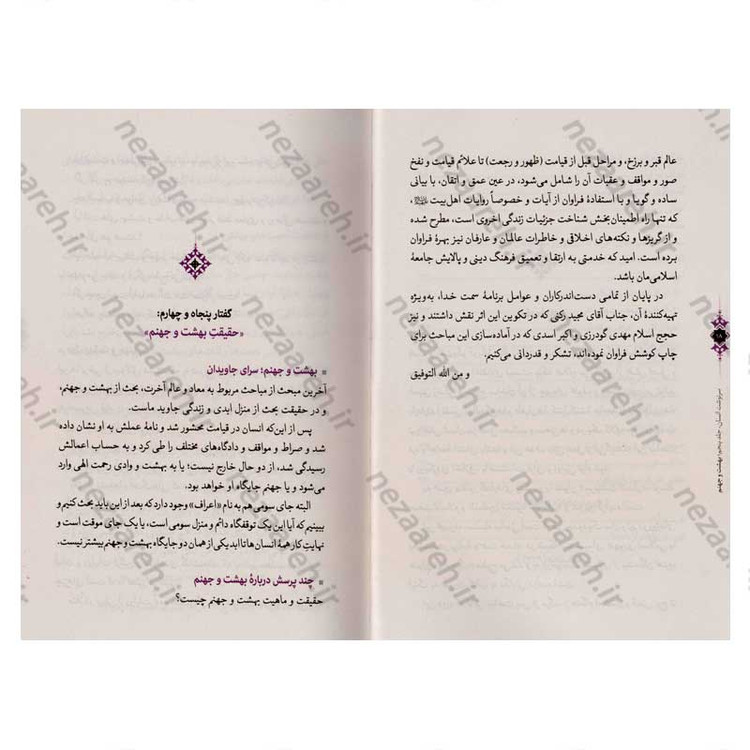 عالم قبر و برزخ، و مراحل قبل از قیامت (ظهور و رجعت) تا علائم قیامت و نفخ
صور و مواقف و عقبات آن را شامل می‌شود، در عین عمق و اتقان، با بیانی
ساده و گویا و با استفادهٔ فراوان از آیات و خصوصاً روایات اهل‌بیت
که تنها راه اطمینان‌بخش شناخت جزئیات زندگی اخروی است، مطرح شده
و از گریزها و نکته‌های اخلاقی و خاطرات عالمان و عارفان نیز بهرهٔ فراوان
برده است. امید که خدمتی به ارتقا و تعمیق فرهنگ دینی و پالایش جامعهٔ
اسلامی‌مان باشد.
در پایان از تمامی دست‌اندرکاران و عوامل برنامهٔ سمت خدا، به‌ویژه
تهیه‌کنندهٔ آن، جناب آقای مجید رکنی که در تکوین این اثر نقش داشتند و نیز
حجج اسلام مهدی گودرزی و اکبر اسدی که در آماده‌سازی این مباحث برای
چاپ کوشش فراوان نموده‌اند، تشکر و قدردانی می‌کنیم.
و من الله التوفیق
۱۸
سرنوشت انسان، جلد پنجم: بهشت و جهنم
گفتار پنجاه و چهارم:
«حقیقتِ بهشت و جهنم»
بهشت و جهنم؛ سرای جاویدان
آخرین مبحث از مباحث مربوط به معاد و عالم آخرت، بحث از بهشت و جهنم،
و در حقیقت بحث از منزل ابدی و زندگی جاوید ماست.
پس از این‌که انسان در قیامت محشور شد و نامهٔ عملش به او نشان داده
شد و صراط و مواقف و دادگاه‌های مختلف را طی کرد و به حساب اعمالش
رسیدگی شد، از دو حال خارج نیست؛ یا به بهشت و وادی رحمت الهی وارد
می‌شود و یا جهنم جایگاه او خواهد بود.
البته جای سومی هم به نام «اعراف» وجود دارد که بعد از این باید بحث کنیم و
ببینیم که آیا این یک توقفگاه دائم و منزل سومی است، یا یک جای موقت است و
نهایتِ کار همهٔ انسان‌ها تا ابد یکی از همان دو جایگاه بهشت و جهنم بیشتر نیست.
چند پرسش دربارهٔ بهشت و جهنم
حقیقت و ماهیت بهشت و جهنم چیست؟
nezaareh.ir
nezaareh.ir
nezaareh.ir
nezaareh.ir
nezaareh.ir
nezaareh.ir
nezaareh.ir
nezaareh.ir